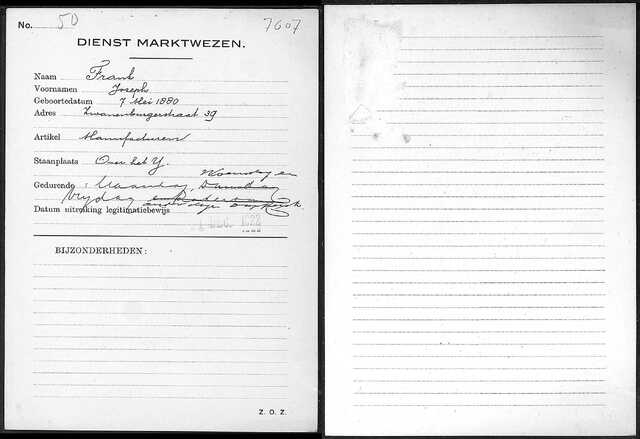 No. 50 7607
DIENST MARKTWEZEN.
Naam Frank
Voornamen Joseph
Geboortedatum 7 Mei 1880
Adres Zwanenburgerstraat 39
Artikel Manufacturen
Staanplaats Over het Y.
Woensdag en
Gedurende: Maandag, Dinsdag
Vrijdag
Datum uitreiking legitimatiebewijs
BIJZONDERHEDEN:
Z. O. Z.